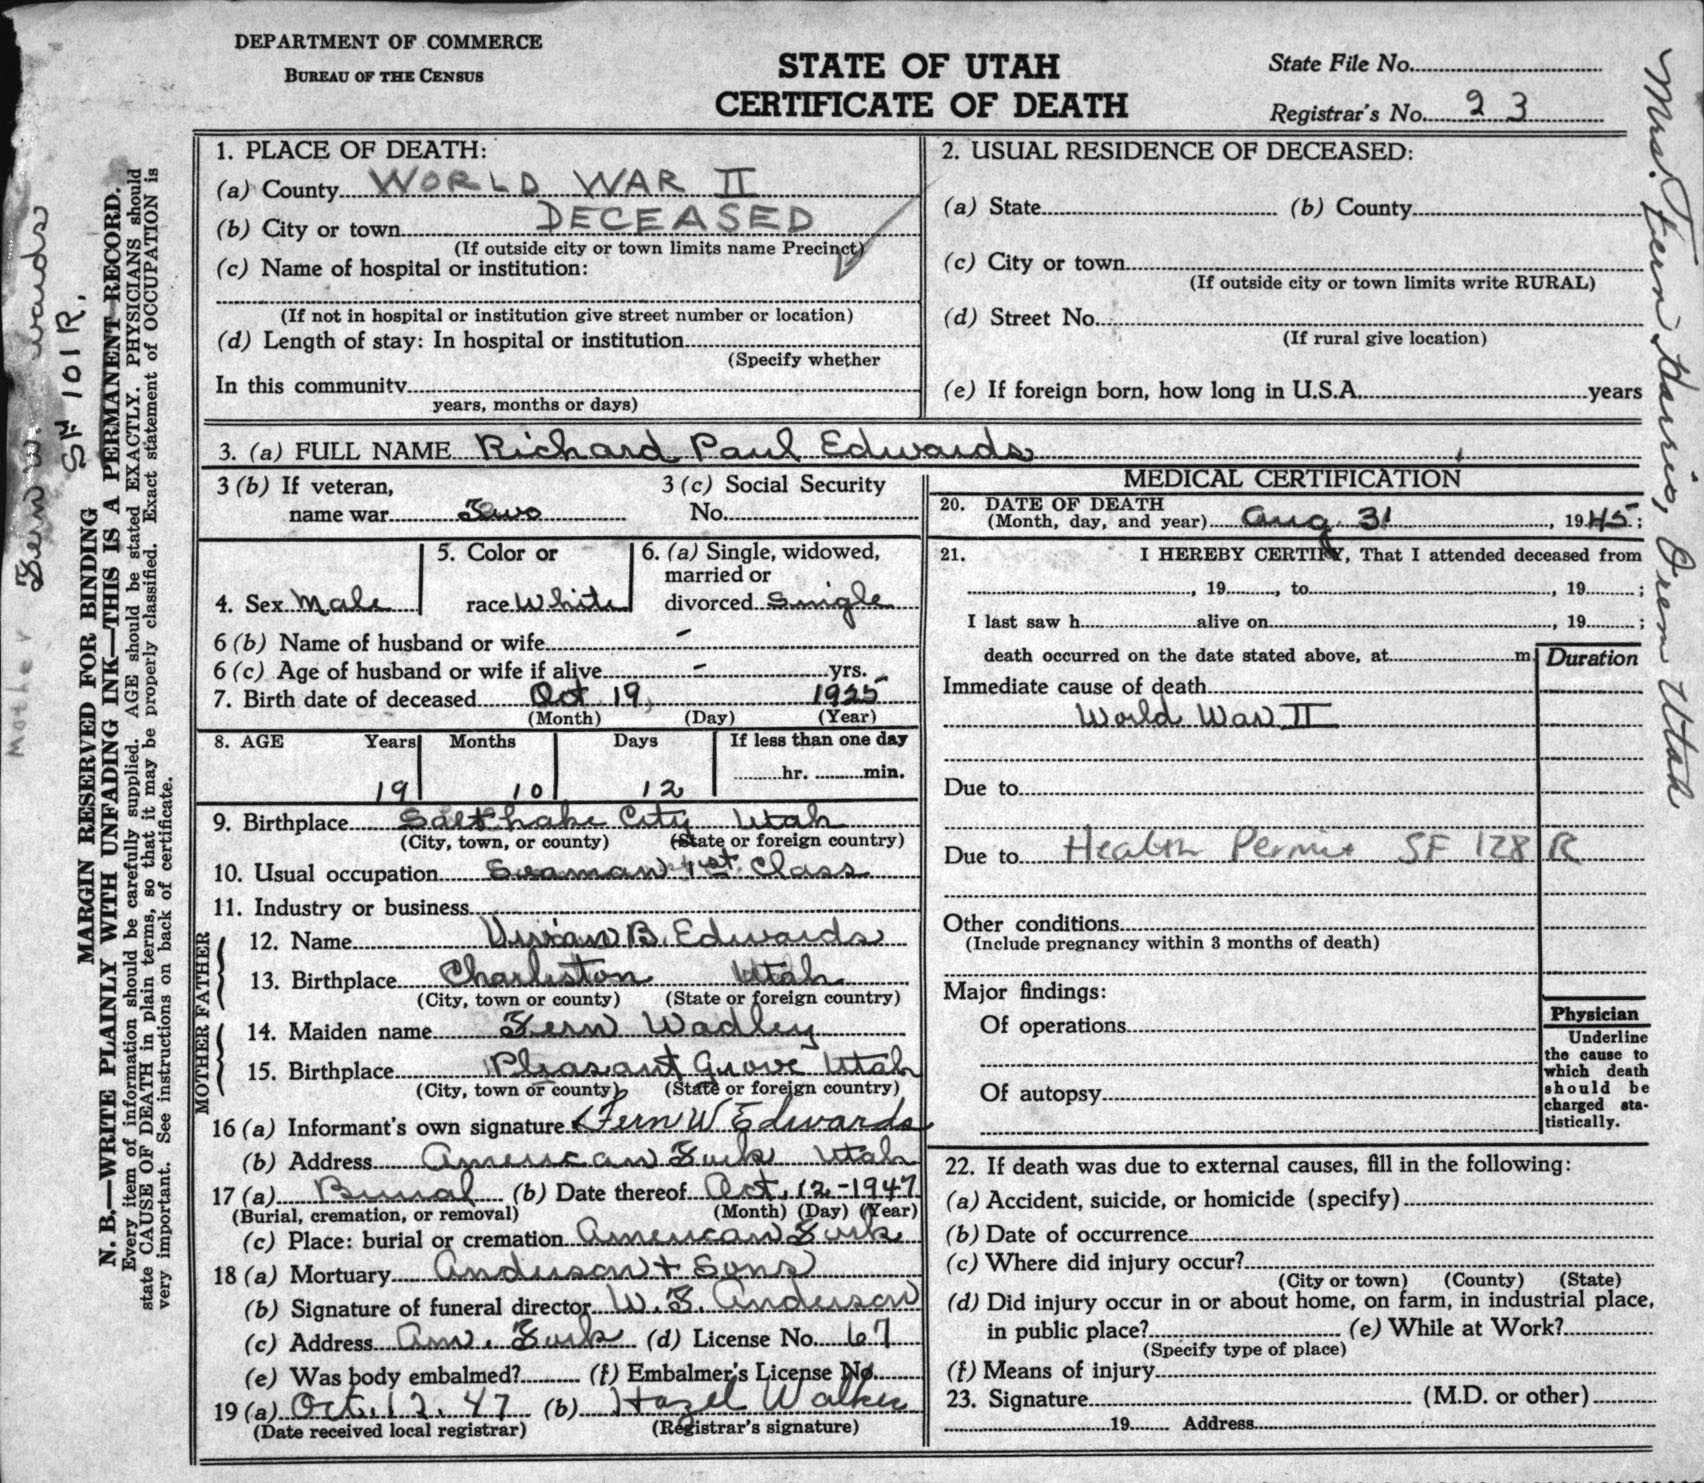 DEPARTMENT OF COMMERCE
BUREAU OF THE CENSUS
STATE OF UTAH
CERTIFICATE OF DEATH
State File No.
Registrar's No. 23
1. PLACE OF DEATH:
(a) County WORLD WAR II
(b) City or town DECEASED
(If outside city or town limits name Precinct)
(c) Name of hospital or institution:
(If not in hospital or institution give street number or location)
(d) Length of stay: In hospital or institution
(Specify whether
In this community
years, months or days)
2. USUAL RESIDENCE OF DECEASED:
(a) State (b) County
(c) City or town
(If outside city or town limits write RURAL)
(d) Street No.
(If rural give location)
(e) If foreign born, how long in U.S.A. years
3. (a) FULL NAME Richard Paul Edwards
3 (b) If veteran,
name war Two
3 (c) Social Security
No.
4. Sex Male
5. Color or
race White
6. (a) Single, widowed,
married or
divorced Single
6 (b) Name of husband or wife -
6 (c) Age of husband or wife if alive - yrs.
7. Birth date of deceased Oct 19, 1925
(Month) (Day) (Year)
8. AGE Years Months Days If less than one day
19 10 12 hr. min.
9. Birthplace Salt Lake City Utah
(City, town, or county) (State or foreign country)
10. Usual occupation Seaman 1st Class
11. Industry or business
FATHER
12. Name Vivian B. Edwards
13. Birthplace Charleston Utah
(City, town or county) (State or foreign country)
MOTHER
14. Maiden name Fern Wadley
15. Birthplace Pleasant Grove Utah
(City, town or county) (State or foreign country)
16 (a) Informant's own signature Fern W Edwards
(b) Address American Fork Utah
17 (a) Burial (b) Date thereof Oct. 12-1947
(Burial, cremation, or removal) (Month) (Day) (Year)
(c) Place: burial or cremation American Fork
18 (a) Mortuary Anderson + Sons
(b) Signature of funeral director W. F. Anderson
(c) Address Am. Fork (d) License No. 67
(e) Was body embalmed? (f) Embalmer's License No.
19 (a) Oct. 12. 47 (b) Hazel Walker
(Date received local registrar) (Registrar's signature)
MEDICAL CERTIFICATION
20. DATE OF DEATH
(Month, day, and year) Aug 31, 1945;
21. I HEREBY CERTIFY, That I attended deceased from
, 19 , to , 19 ;
I last saw h alive on , 19 ;
death occurred on the date stated above, at m.
Duration
Immediate cause of death
World War II
Due to
Due to Health Permit SF 128 R
Other conditions
(Include pregnancy within 3 months of death)
Major findings:
Of operations
Of autopsy
Physician
Underline
the cause to
which death
should be
charged sta-
tistically.
22. If death was due to external causes, fill in the following:
(a) Accident, suicide, or homicide (specify)
(b) Date of occurrence
(c) Where did injury occur?
(City or town) (County) (State)
(d) Did injury occur in or about home, on farm, in industrial place,
in public place? (e) While at Work?
(Specify type of place)
(f) Means of injury
23. Signature (M.D. or other)
19 Address
MARGIN RESERVED FOR BINDING
N. B.—WRITE PLAINLY WITH UNFADING INK—THIS IS A PERMANENT RECORD.
Every item of information should be carefully supplied. AGE should be stated EXACTLY. PHYSICIANS should
state CAUSE OF DEATH in plain terms, so that it may be properly classified. Exact statement of OCCUPATION is
very important. See instructions on back of certificate.
Mother Fern W. wards
101 R.
Mrs. Fern Harris, Orem Utah